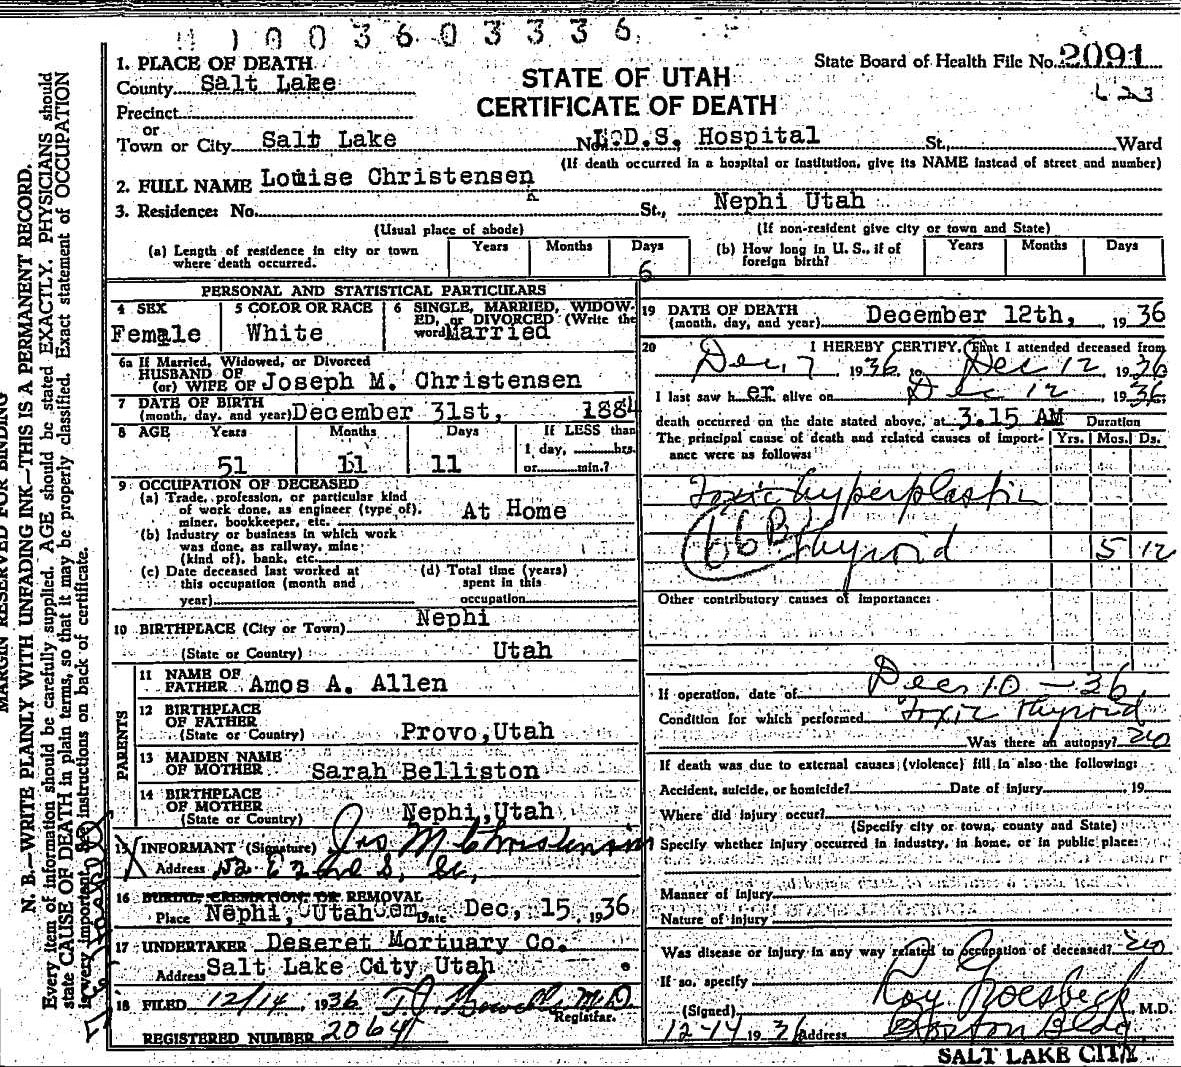 1003603336
1. PLACE OF DEATH
County Salt Lake
Precinct
or
Town or City Salt Lake
STATE OF UTAH
CERTIFICATE OF DEATH
State Board of Health File No. 2091
623
No. L.D.S. Hospital St., Ward
(If death occurred in a hospital or institution, give its NAME instead of street and number)
2. FULL NAME Louise Christensen
3. Residence: No. St., Nephi Utah
(Usual place of abode) (If non-resident give city or town and State)
(a) Length of residence in city or town where death occurred. Years Months Days 6
(b) How long in U. S., if of foreign birth? Years Months Days
PERSONAL AND STATISTICAL PARTICULARS
4 SEX Female
5 COLOR OR RACE White
6 SINGLE, MARRIED, WIDOWED, or DIVORCED (Write the word) Married
6a If Married, Widowed, or Divorced
HUSBAND OF
(or) WIFE OF Joseph M. Christensen
7 DATE OF BIRTH
(month, day, and year) December 31st, 1884
8 AGE Years Months Days If LESS than
1 day, hrs.
51 11 11 or min.?
9 OCCUPATION OF DECEASED
(a) Trade, profession, or particular kind
of work done, as engineer (type of),
miner, bookkeeper, etc. At Home
(b) Industry or business in which work
was done, as railway, mine
(kind of), bank, etc.
(c) Date deceased last worked at
this occupation (month and
year)
(d) Total time (years)
spent in this
occupation
10 BIRTHPLACE (City or Town) Nephi
(State or Country) Utah
PARENTS
11 NAME OF
FATHER Amos A. Allen
12 BIRTHPLACE
OF FATHER
(State or Country) Provo, Utah
13 MAIDEN NAME
OF MOTHER Sarah Belliston
14 BIRTHPLACE
OF MOTHER
(State or Country) Nephi, Utah
15 INFORMANT (Signature) Jos M Christensen
Address
16 BURIAL, CREMATION, OR REMOVAL
Place Nephi, Utah Cem Date Dec, 15, 1936
17 UNDERTAKER Deseret Mortuary Co.
Address Salt Lake City Utah
18 FILED 12/14 1936 M.D.
Registrar.
REGISTERED NUMBER 2064
19 DATE OF DEATH
(month, day, and year) December 12th, 1936
20 I HEREBY CERTIFY, That I attended deceased from
Dec 7 1936 to Dec 12 1936
I last saw her alive on Dec 12 1936;
death occurred on the date stated above, at 3.15 AM Duration
The principal cause of death and related causes of importance were as follows: Yrs. Mos. Ds.
Toxic hyperplastic
66B Thyroid 5 12
Other contributory causes of importance:
If operation, date of Dec 10 - 36
Condition for which performed Toxic Thyroid
Was there an autopsy? no
If death was due to external causes (violence) fill in also the following:
Accident, suicide, or homicide? Date of injury 19
Where did injury occur?
(Specify city or town, county and State)
Specify whether injury occurred in industry, in home, or in public place:
Manner of Injury
Nature of Injury
Was disease or injury in any way related to occupation of deceased? no
If so, specify
(Signed) Roy Groesbeck M.D.
12-14 1936 Address Boston Bldg
SALT LAKE CITY
MARGIN RESERVED FOR BINDING
N. B.—WRITE PLAINLY WITH UNFADING INK—THIS IS A PERMANENT RECORD.
Every item of information should be carefully supplied. AGE should be stated EXACTLY. PHYSICIANS should
state CAUSE OF DEATH in plain terms, so that it may be properly classified. Exact statement of OCCUPATION
is very important. See instructions on back of certificate.